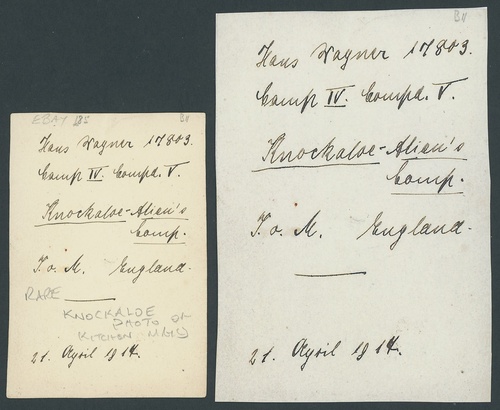 EBAY 185 BH
Hans Wagner 17803.
Camp IV. Compd. V.
Knockaloe-Alien's
Camp.
I. o. M. England.
RARE
KNOCKALOE
PHOTO OF
KITCHEN
21. April 1917.
BH
Hans Wagner 17803.
Camp IV. Compd. V.
Knockaloe-Alien's
Camp.
I. o. M. England.
21. April 1917.